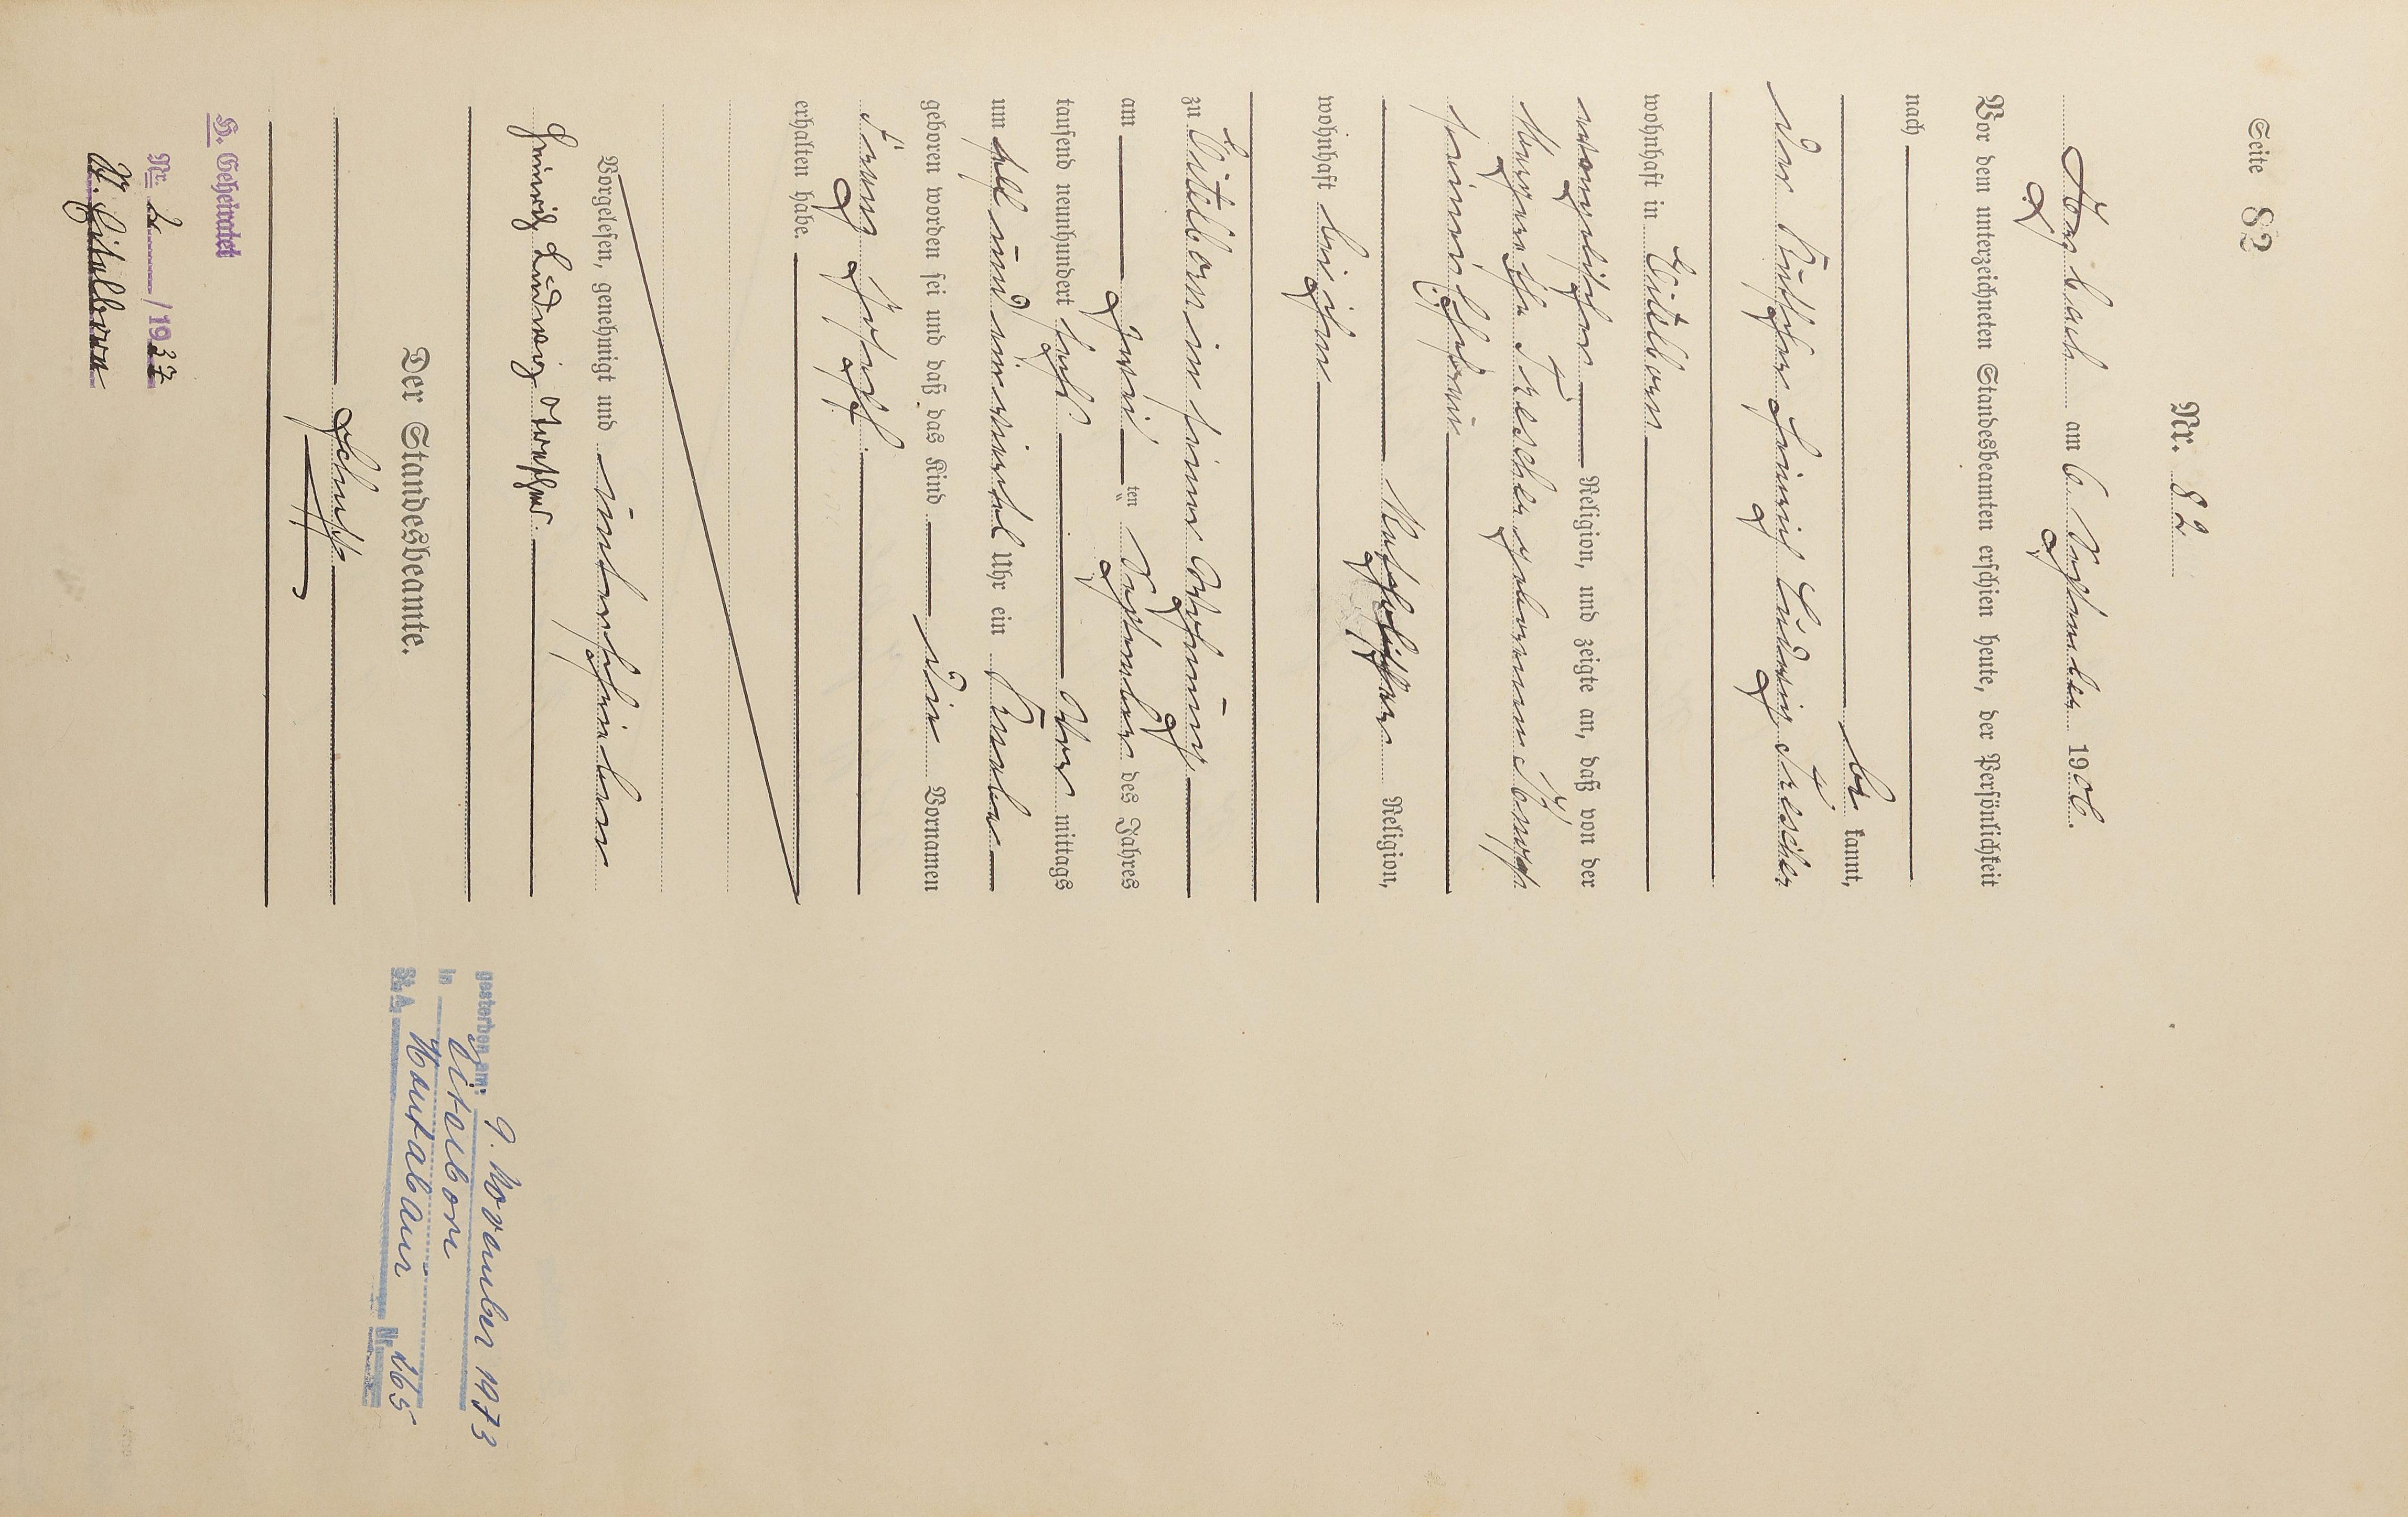 Seite 82
Nr. 82
Horbach am 6 September 1906.
Vor dem unterzeichneten Standesbeamten erschien heute, der Persönlichkeit
nach
be kannt,
der Heinrich Ludwig Drescher
wohnhaft in Eitelborn
evangelischer Religion, und zeigte an, daß von der
Margaretha Drescher geborenen
seiner Ehefrau
Katholischer Religion,
wohnhaft bei ihm
zu Eitelborn in seiner Wohnung
am zwei ten September des Jahres
tausend neunhundert sechs Vor mittags
um elf und ein viertel Uhr ein Knabe
geboren worden sei und daß das Kind die Vornamen
Franz Joseph
erhalten habe.
Vorgelesen, genehmigt und unterschrieben
Heinrich Ludwig Drescher
Der Standesbeamte.
H. Geheiratet
Nr. 2 /1937
Eitelborn
gestorben am: 9. November 1973
in Eitelborn
St. A. Montabaur Nr. 165